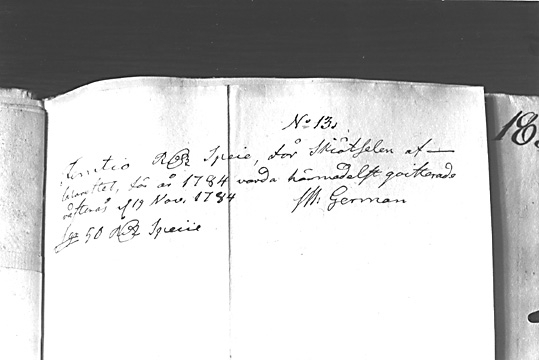 No 13.
Femtio RDR Specie, för Skiötselen af
lazarettet, för år 1784 varda härmedelst qvitterade
Westerås d 19 Nov. 1784
SM German
50 RDR Specie
18